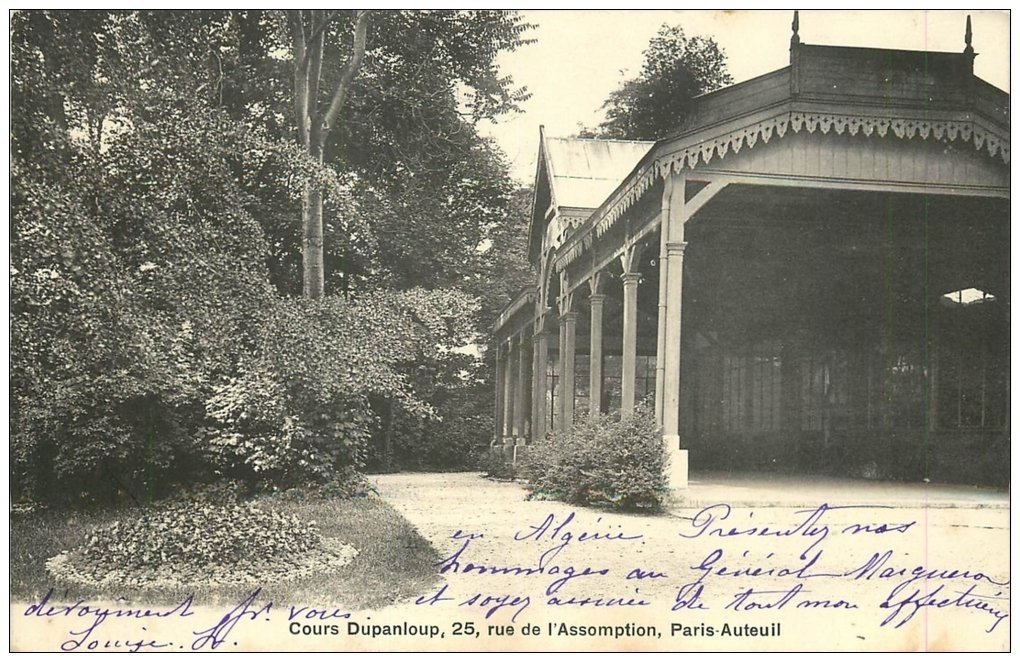 en Algérie. Présentez nos
hommages au Général Margueron
et soyez assurée de tout mon affectueux
dévoûment pr vous
Louise. H.
Cours Dupanloup, 25, rue de l'Assomption, Paris-Auteuil